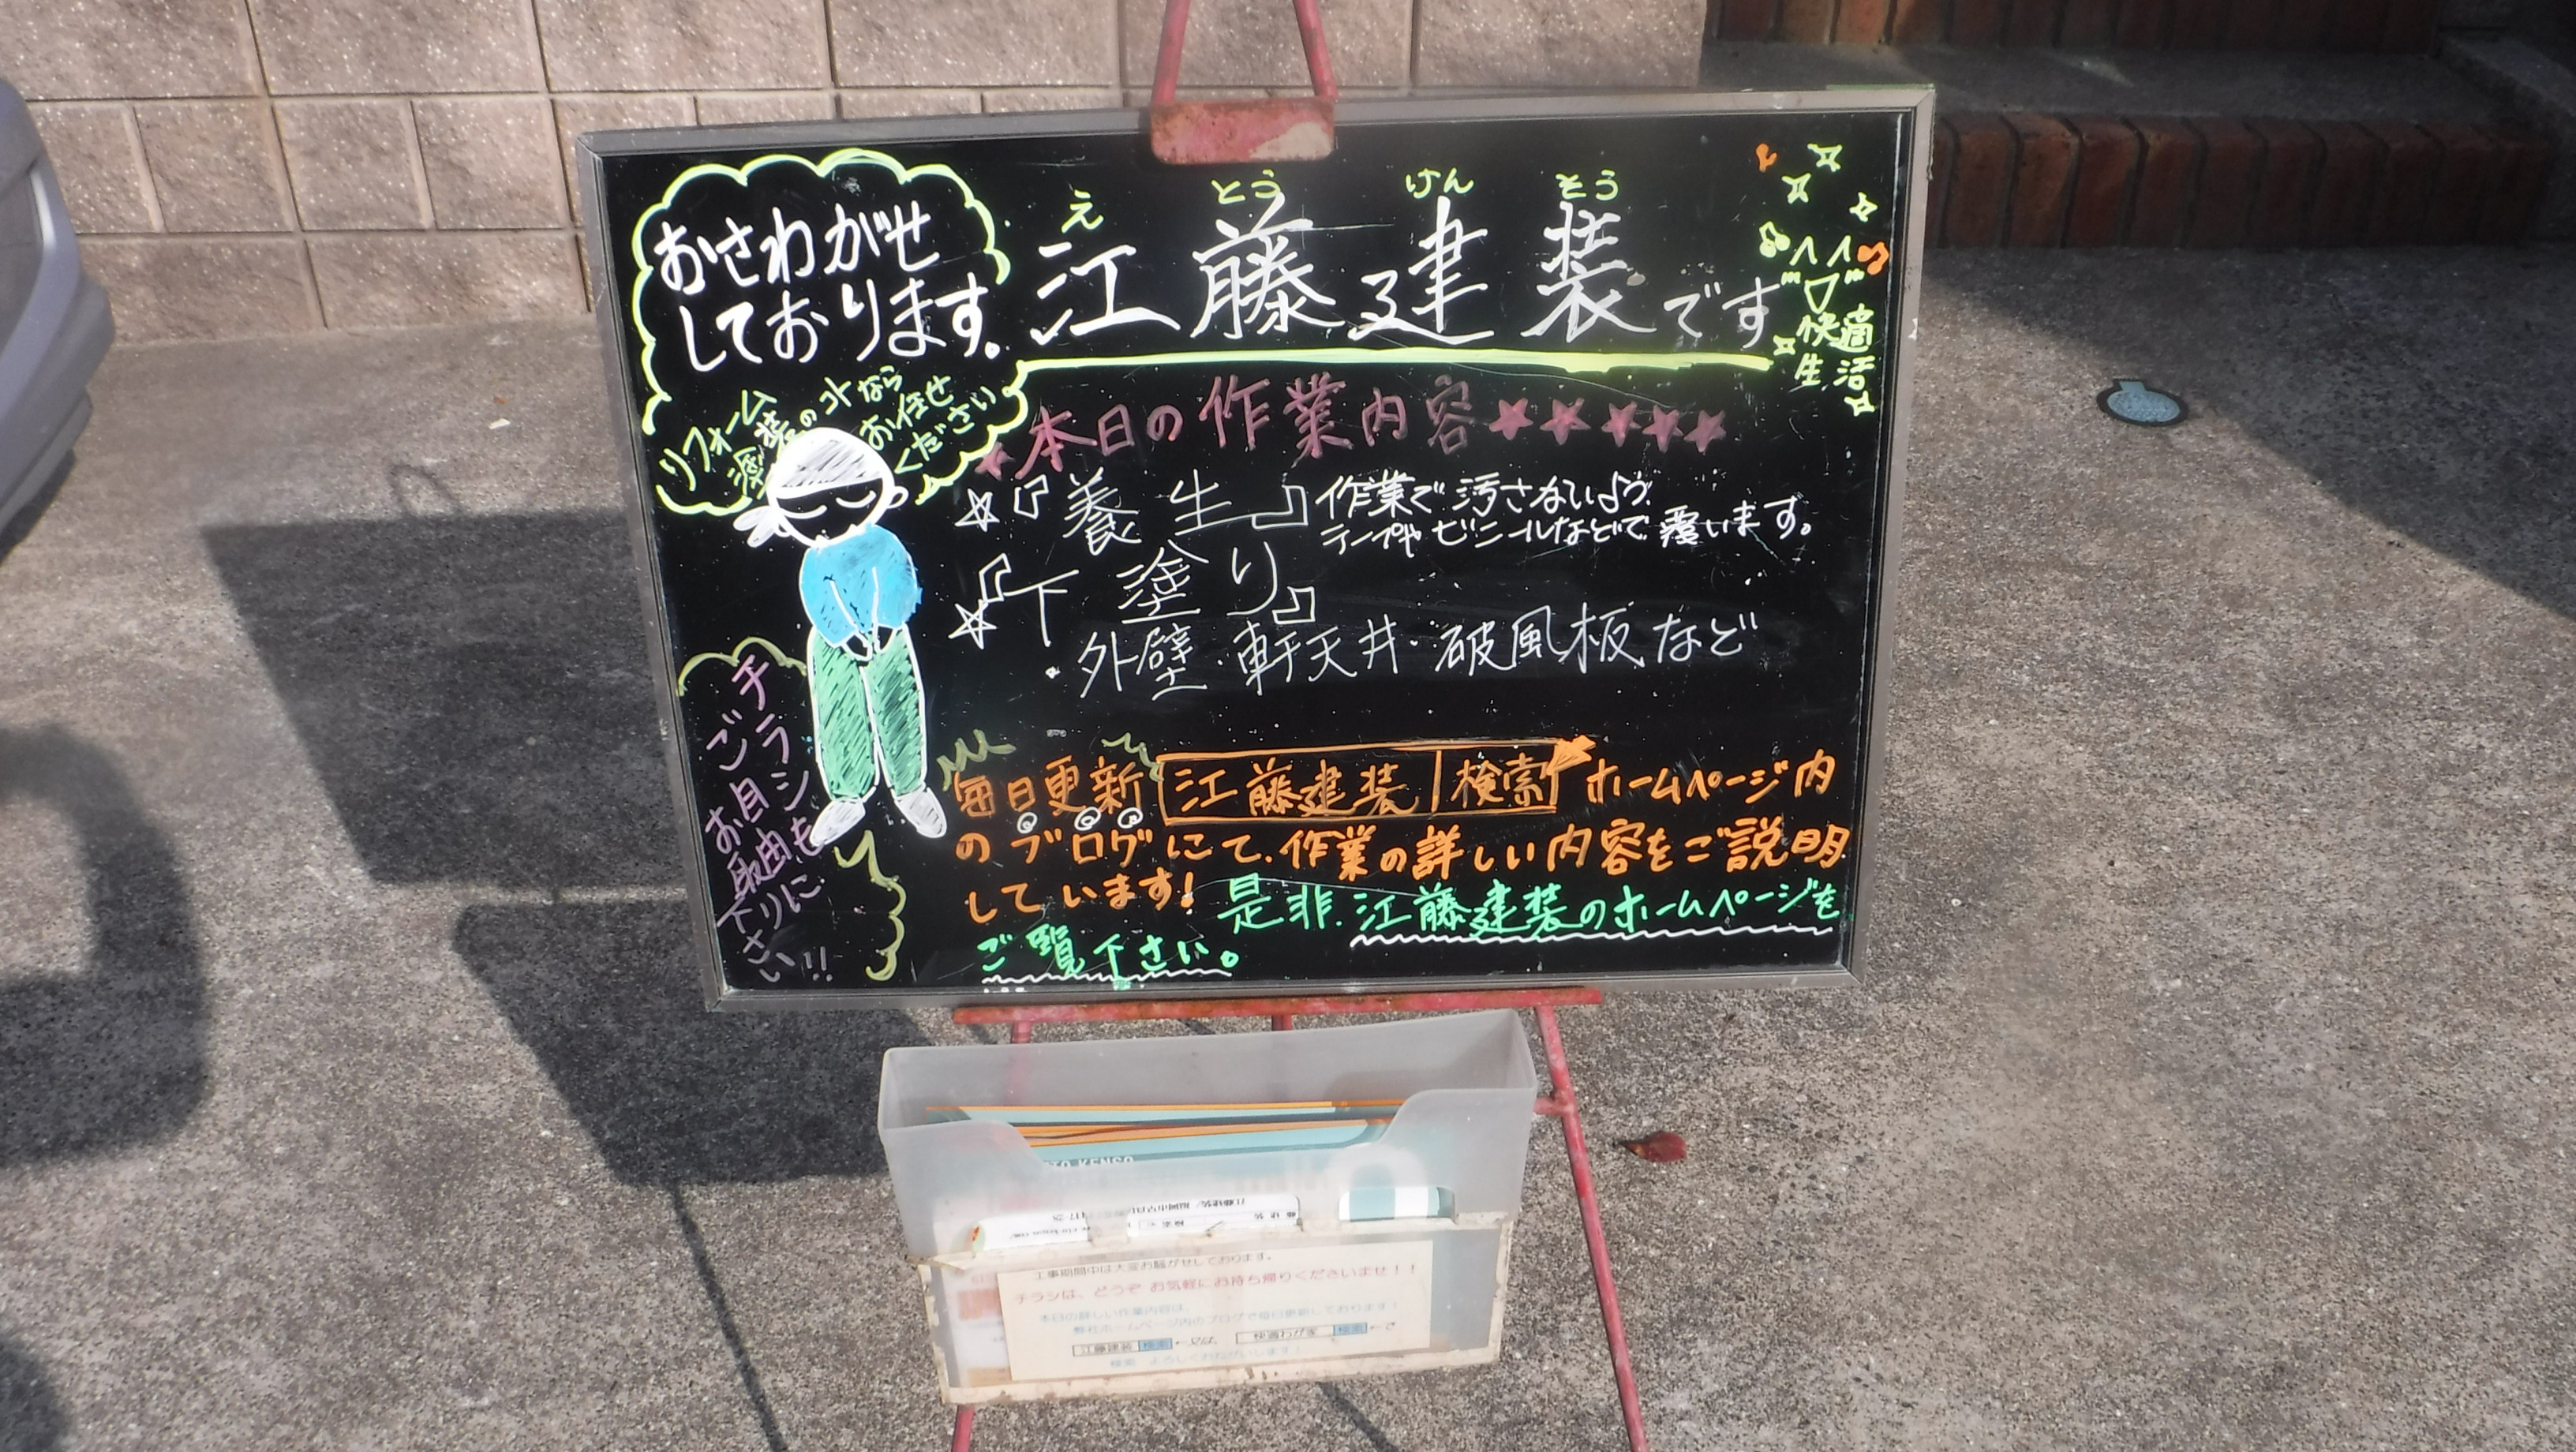 おさわがせ
しております。
リフォーム
塗装のコトなら
お任せ
ください
え とう けん そう
江藤建装です
快適
生活
本日の作業内容
『養生』作業で汚さないよう
テープやビニールなどで覆います。
『下塗り』
・外壁・軒天井・破風板など
チラシも
ご自由に
お取り
下さい!!
毎日更新 江藤建装 検索 ホームページ内
のブログにて、作業の詳しい内容をご説明
しています！是非、江藤建装のホームページを
ご覧下さい。
KENSO
工事期間中は大変お騒がせしております。
チラシは、どうぞ お気軽にお持ち帰りくださいませ！！
本日の詳しい作業内容は、
弊社ホームページ内のブログで毎日更新しております！
江藤建装 検索 快適わが家 検索